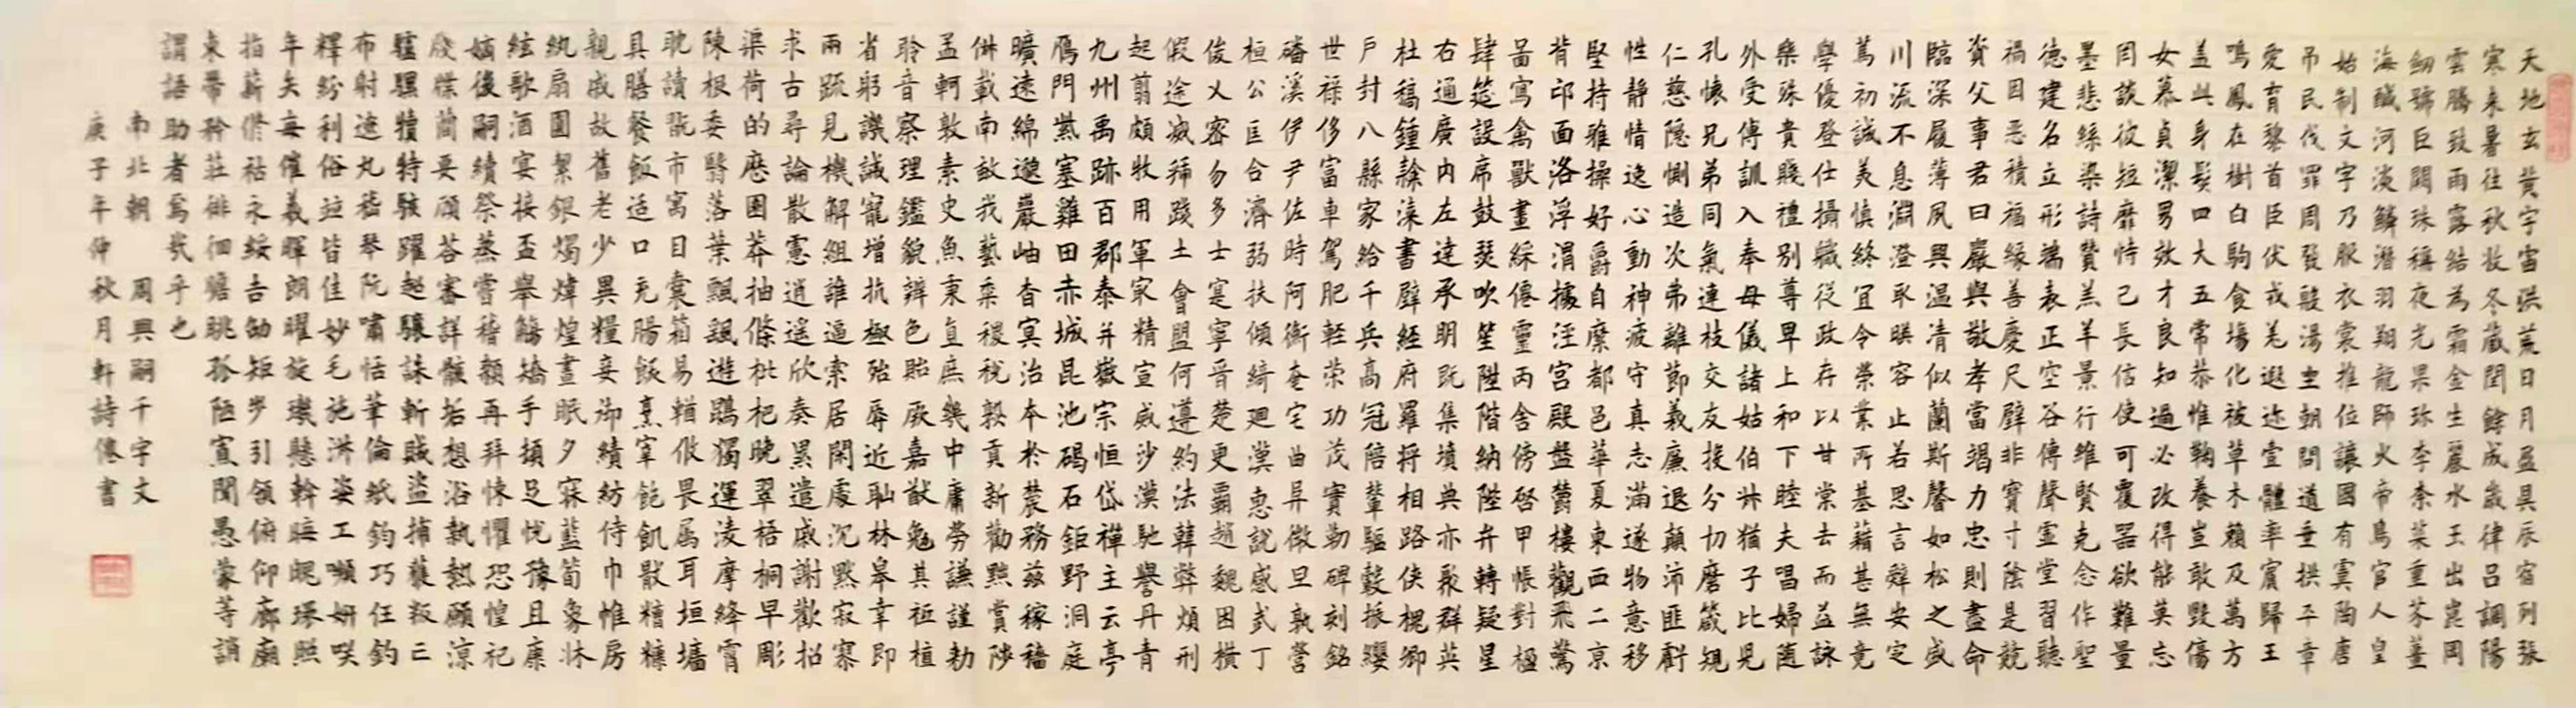 天地玄黃宇宙洪荒日月盈昃辰宿列張
寒来暑往秋收冬蔵閏餘成歲律呂調陽
雲騰致雨露結為霜金生麗水玉出崑岡
劍號巨闕珠稱夜光果珍李柰菜重芥薑
海鹹河淡鱗潛羽翔龍師火帝鳥官人皇
始制文字乃服衣裳推位讓國有虞陶唐
吊民伐罪周發殷湯坐朝問道垂拱平章
愛育黎首臣伏戎羌遐迩壹體率賓歸王
鳴鳳在樹白駒食場化被草木賴及萬方
盖此身髮四大五常恭惟鞠養豈敢毀傷
女慕貞潔男效才良知過必改得能莫忘
罔談彼短靡恃己長信使可覆器欲難量
墨悲絲染詩贊羔羊景行維賢克念作聖
德建名立形端表正空谷傳聲虛堂習聽
禍因惡積福緣善慶尺璧非寶寸陰是競
資父事君曰嚴與敬孝當竭力忠則盡命
臨深履薄夙興温凊似蘭斯馨如松之盛
川流不息淵澄取暎容止若思言辭安定
篤初誠美慎終宜令榮業所基藉甚無竟
學優登仕攝職從政存以甘棠去而益詠
樂殊貴賤禮別尊卑上和下睦夫唱婦隨
外受傅訓入奉母儀諸姑伯叔猶子比兒
孔懷兄弟同氣連枝交友投分切磨箴規
仁慈隱惻造次弗離節義廉退顛沛匪虧
性靜情逸心動神疲守真志滿逐物意移
堅持雅操好爵自縻都邑華夏東西二京
背邙面洛浮渭據涇宮殿盤鬱樓觀飛驚
圖寫禽獸畫綵僊靈丙舍傍啓甲帳對楹
肆筵設席鼓瑟吹笙陞階納陛弁轉疑星
右通廣内左達承明既集墳典亦聚群英
杜稿鍾隸漆書壁經府羅將相路俠槐卿
户封八縣家給千兵高冠陪輦驅轂振纓
世禄侈富車駕肥輕策功茂實勒碑刻銘
磻溪伊尹佐時阿衡奄宅曲阜微旦孰營
桓公匡合濟弱扶傾綺廻漢惠說感武丁
俊乂密勿多士寔寧晉楚更霸趙魏困橫
假途滅虢踐土會盟何遵約法韓弊煩刑
起翦頗牧用軍最精宣威沙漠馳譽丹青
九州禹跡百郡秦并嶽宗恒岱禪主云亭
鴈門紫塞雞田赤城昆池碣石鉅野洞庭
曠遠綿邈巖岫杳冥治本於農務茲稼穡
俶載南畝我藝黍稷稅熟貢新勸黜賞陟
孟軻敦素史魚秉直庶幾中庸勞謙謹勅
聆音察理鑑貌辨色貽厥嘉猷勉其祗植
省躬譏誡寵增抗極殆辱近耻林皋幸即
兩疏見機解組誰逼索居閑處沉默寂寥
求古尋論散慮逍遙欣奏累遣慼謝歡招
渠荷的歷園莽抽條枇杷晚翠梧桐早彫
陳根委翳落葉飄颻遊鵾獨運凌摩絳霄
耽讀翫市寓目囊箱易輶攸畏屬耳垣墻
具膳餐飯适口充腸飫烹宰飽飢猒糟糠
親戚故舊老少異糧妾御績紡侍巾帷房
紈扇圓絜銀燭煒煌晝眠夕寐藍筍象牀
絃歌酒宴接盃舉觴矯手頓足悅豫且康
嫡後嗣續祭蒸嘗稽顙再拜悚懼恐惶祀
牋牒簡要顧答審詳骸垢想浴執熱願涼
驢騾犢特駭躍超驤誅斬賊盜捕獲叛亡
布射遼丸嵇琴阮嘯恬筆倫紙鈞巧任釣
釋紛利俗並皆佳妙毛施淑姿工嚬妍咲
年矢每催羲暉朗曜旋璣懸斡晦魄環照
指薪修祜永綏吉劭矩步引領俯仰廊廟
束帶矜莊徘徊瞻眺孤陋寡聞愚蒙等誚
謂語助者焉哉乎也
南北朝 周興嗣千字文
庚子年仲秋月軒詩僊書